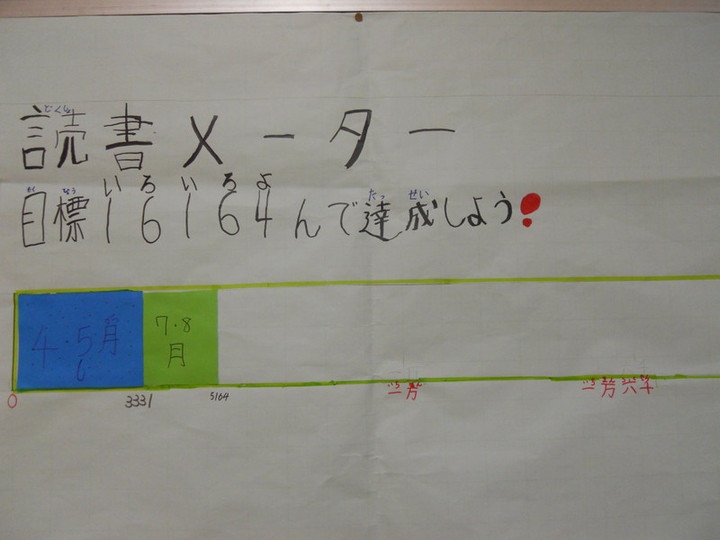 どくしょ
読書メーター
いろいろよ
もくひょう たっ せい
目標16164んで達成しよう!
4・5月 7・8
し 月
0 3331 5164 一万 一万六千